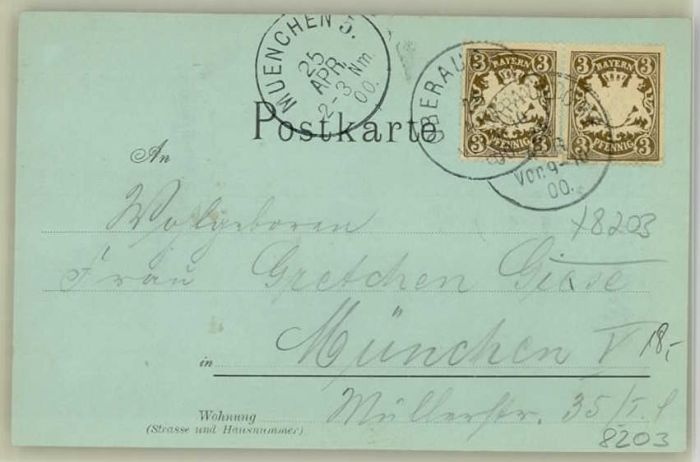 MUENCHEN 5.
25
APR.
2-3 Nm.
00.
BAYERN BAYERN
3 3 3 3
3 3 3 3
PFENNIG PFENNIG
OBERAU
Vor. 9-10
00.
Postkarte
An
Wolgeboren
18203
Frau Gretchen Giese
in München V 18,-
Wohnung Müllerstr. 35/I. S
(Strasse und Hausnummer)
8203